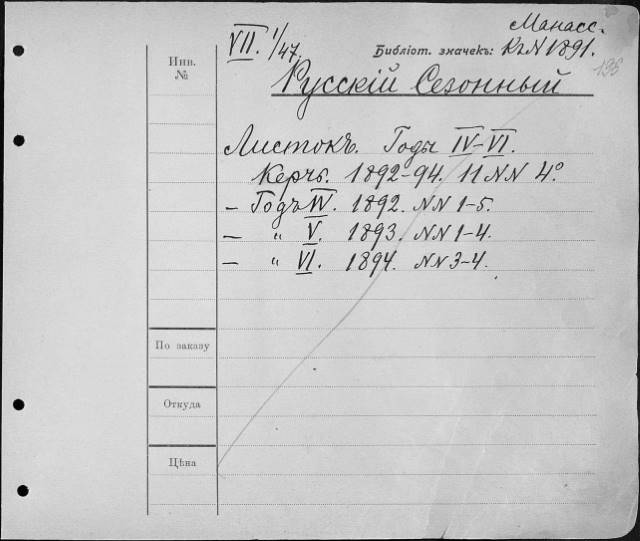 Манасс.
VII. 1/47.
Библіот. значекъ: КгN 1891.
195
Инв.
№
Русскій Сезонный
Листокъ. Годы IV–VI.
Керчь. 1892–94. 11 NN 4°
– Годъ IV. 1892. NN 1–5.
– " V. 1893. NN 1–4.
– " VI. 1894. NN 3–4.
По заказу
Откуда
Цѣна